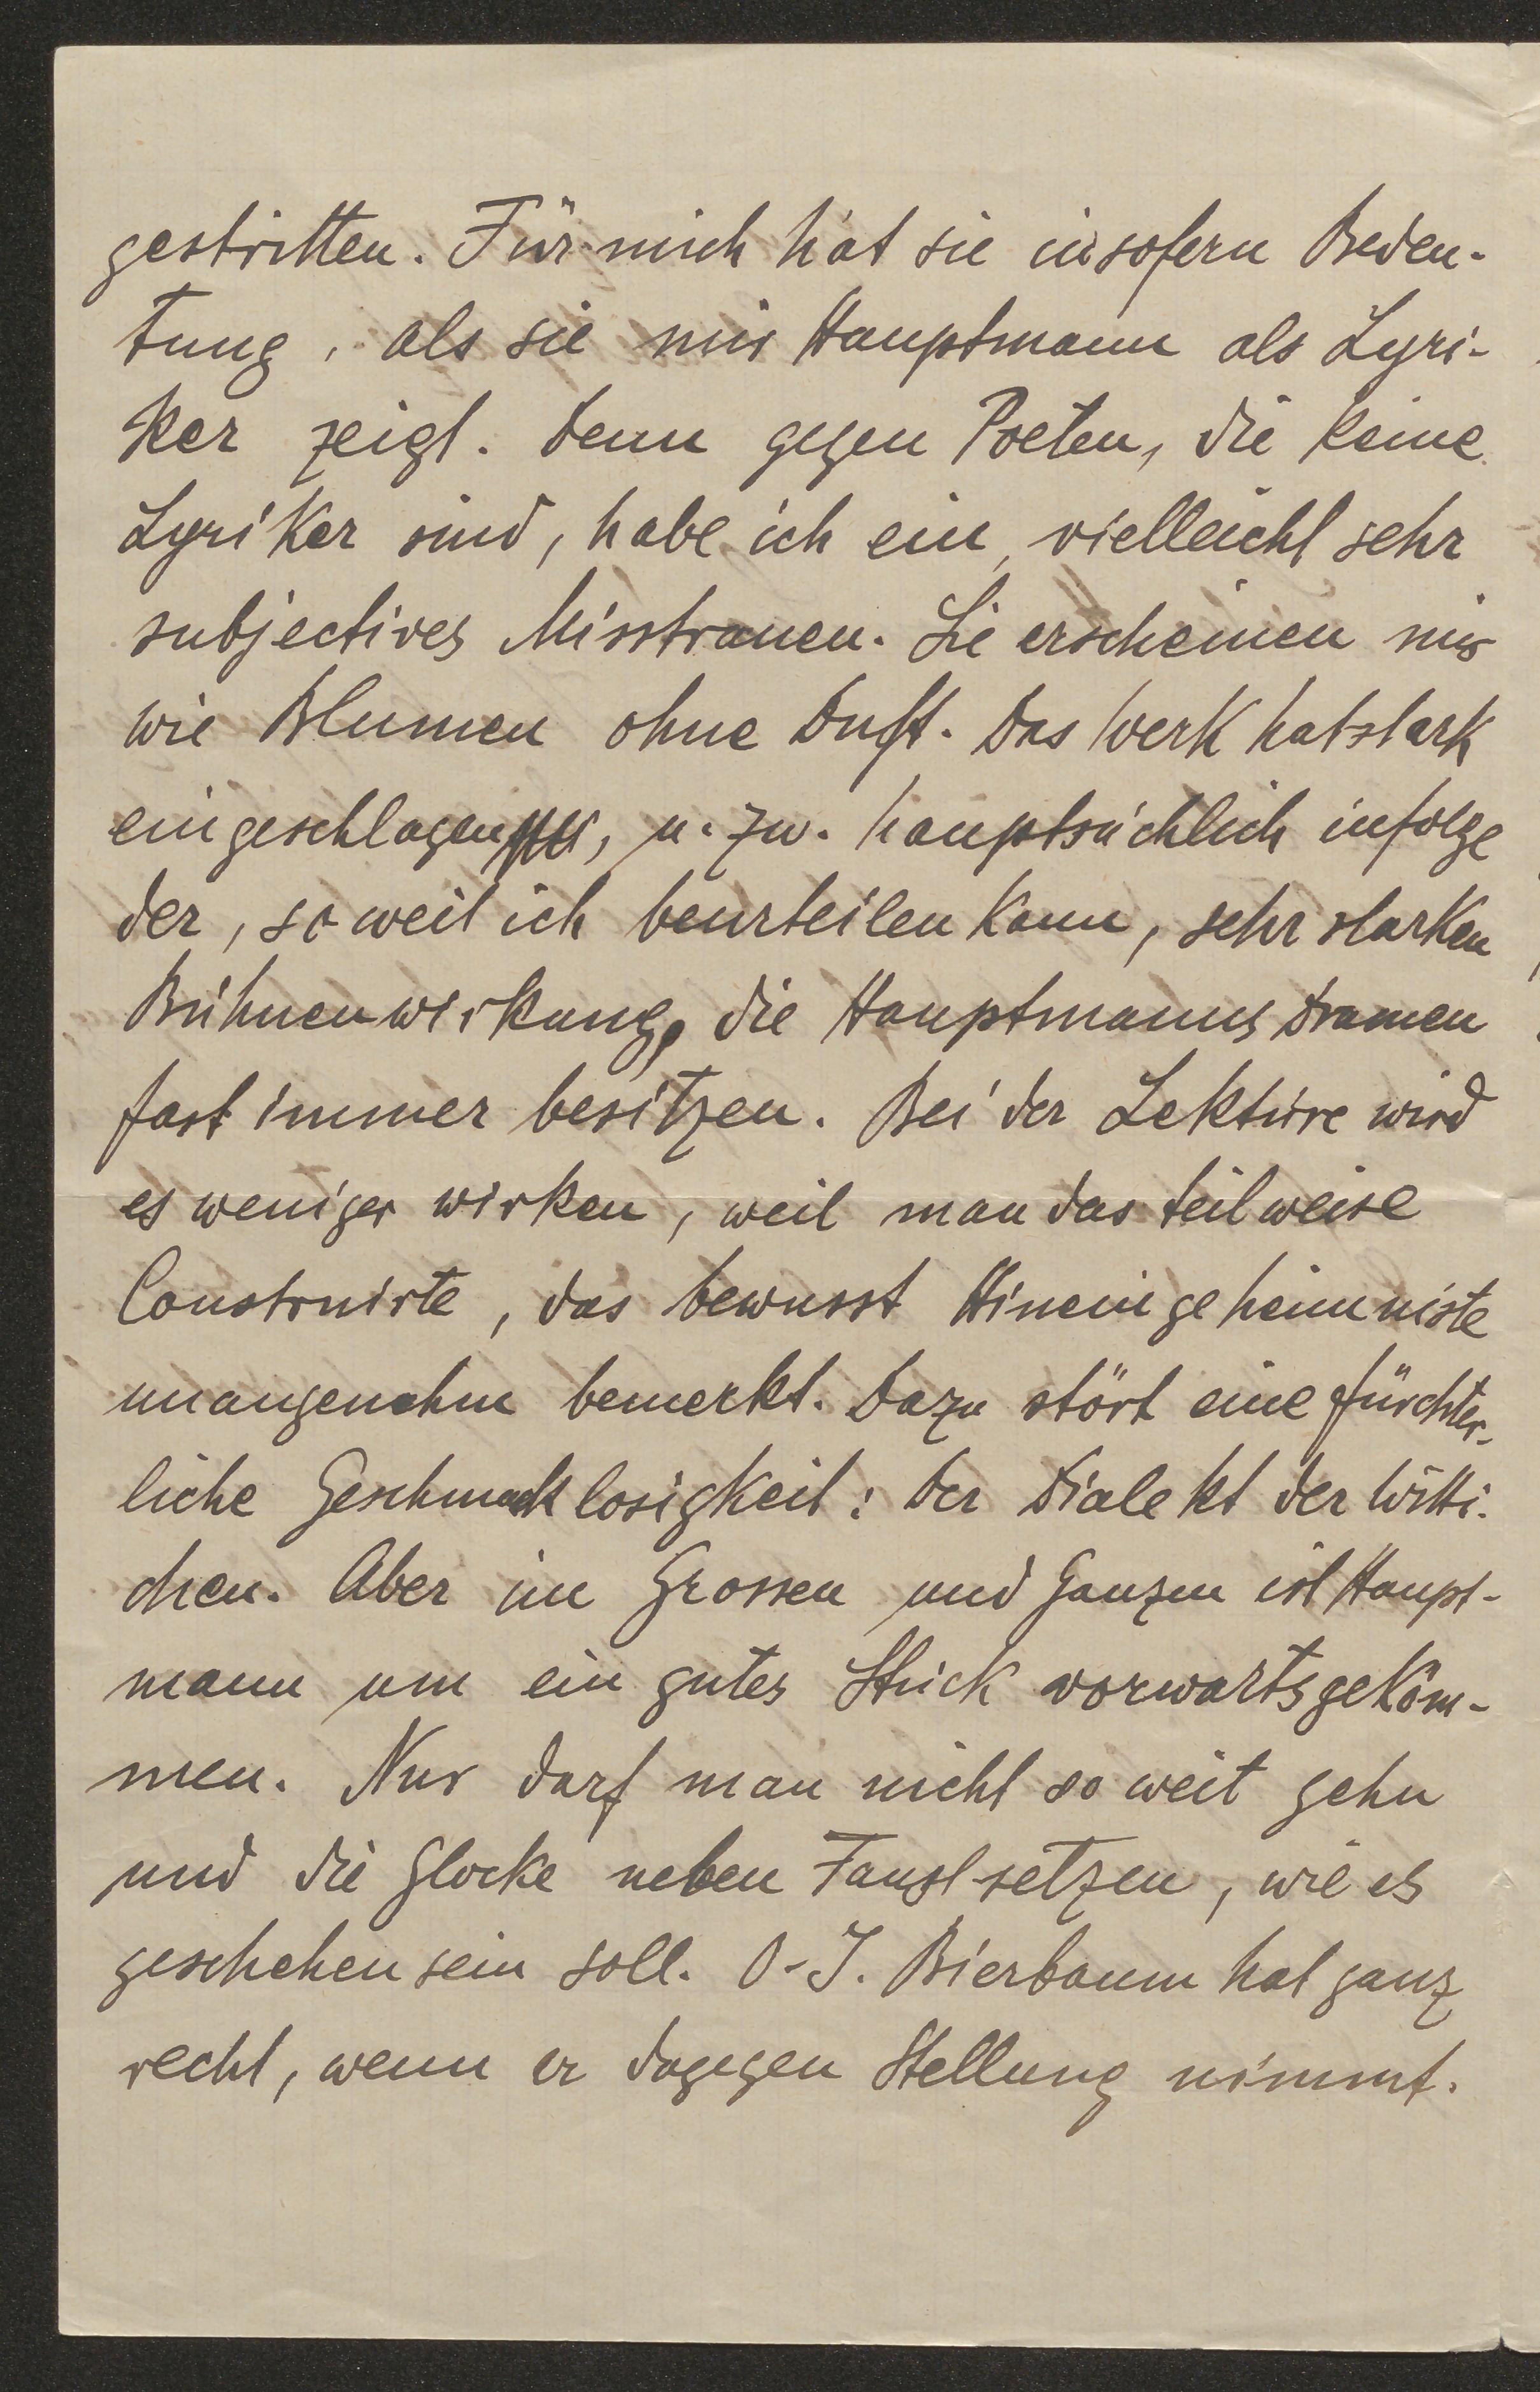 gestritten. Für mich hat sie insofern Bedeu-
tung, als sie mir Hauptmann als Lyri-
ker zeigt. Denn gegen Poeten, die keine
Lyriker sind, habe ich ein, vielleicht sehr
subjectives Misstrauen. Sie erscheinen mir
wie Blumen ohne Duft. Das Werk hat stark
eingeschlagen, u. zw. hauptsächlich infolge
der, so weit ich beurteilen kann, sehr starken
Bühnenwirkung, die Hauptmanns Dramen
fast immer besitzen. Bei der Lektüre wird
es weniger wirken, weil man das teilweise
Construirte, das bewusst Hineingeheimniste
unangenehm bemerkt. Dazu stört eine fürchter-
liche Geschmacklosigkeit: der Dialekt der Witti-
chen. Aber im Grossen und Ganzen ist Haupt-
mann um ein gutes Stück vorwärtsgekom-
men. Nur darf man nicht so weit gehn
und die Glocke neben Faust setzen, wie es
geschehen sein soll. O. J. Bierbaum hat ganz
recht, wenn er dagegen Stellung nimmt.